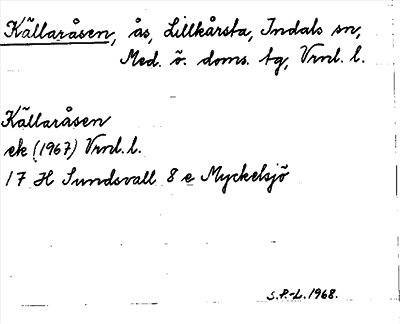 Källaråsen, ås, Lillkårsta, Indals sn,
Med. ö. doms. tg, Vrnl. l.
Källaråsen
ek (1967) Vrnl. l.
17 H Sundsvall 8 e Myckelsjö
S.P.-L. 1968.